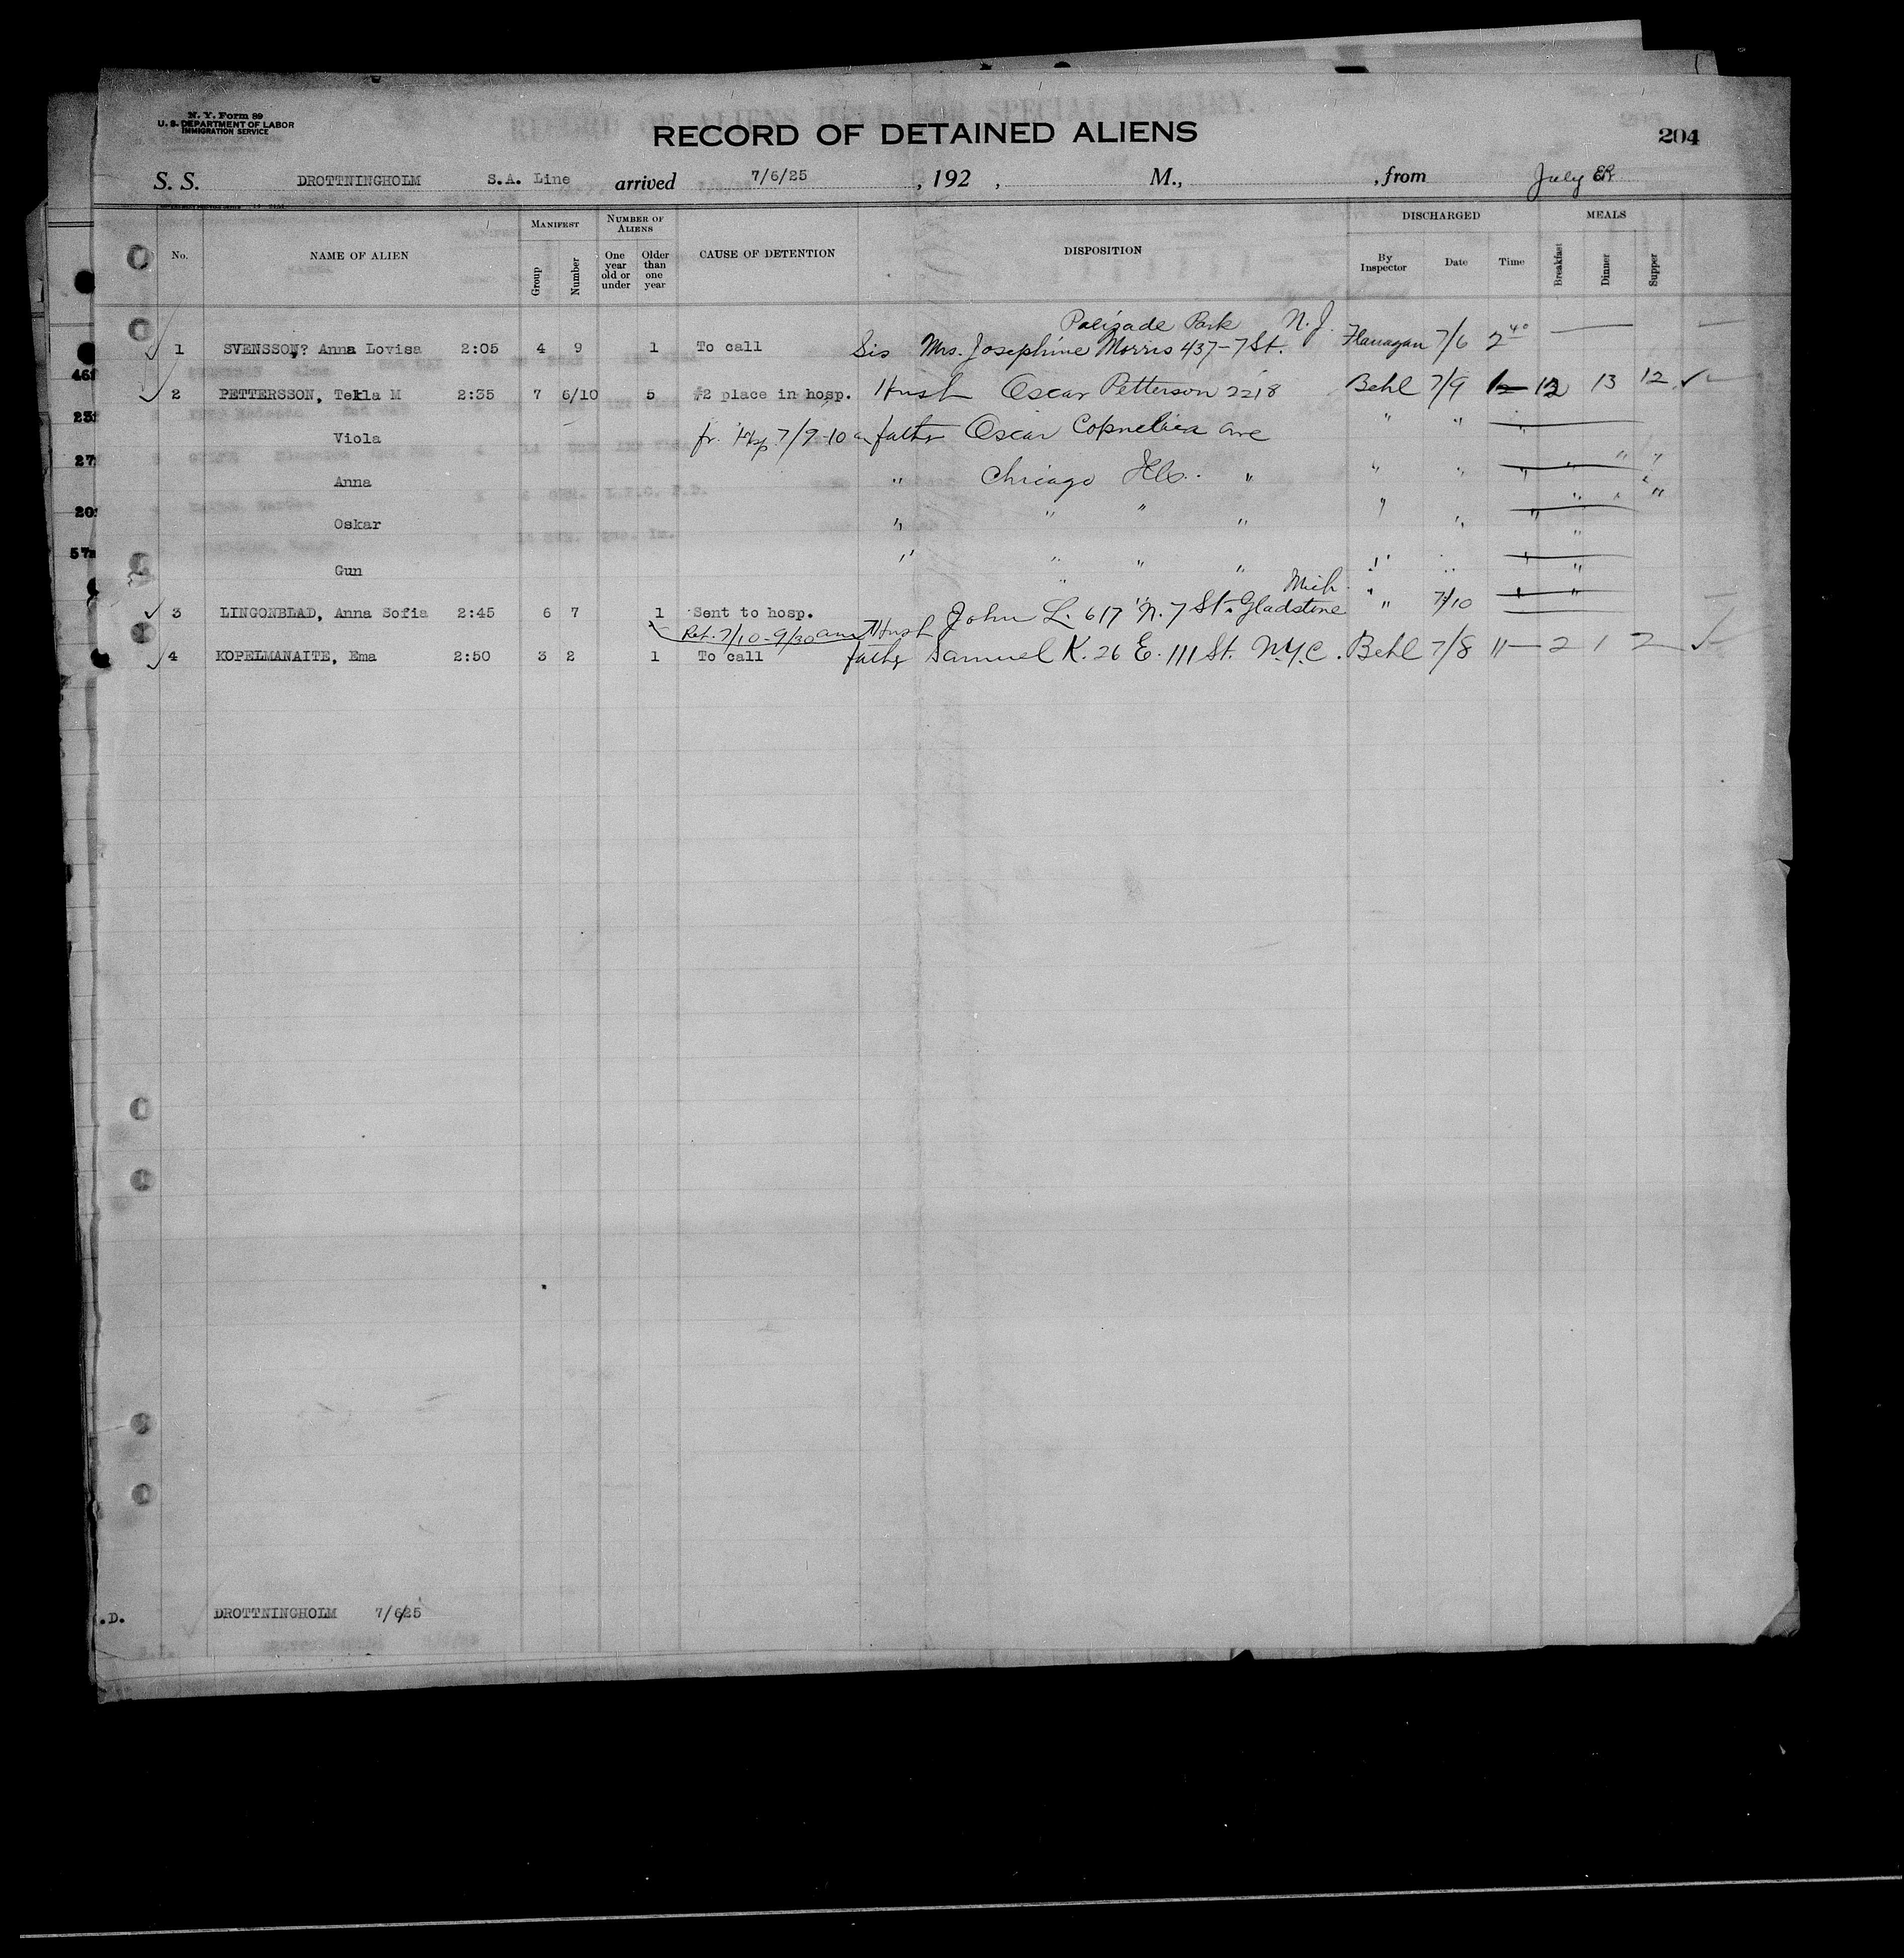 N. Y. Form 89
U. S. DEPARTMENT OF LABOR
IMMIGRATION SERVICE
RECORD OF DETAINED ALIENS
204
S. S. DROTTNINGHOLM S.A. Line arrived 7/6/25, 192 , M., , from July
No. NAME OF ALIEN MANIFEST Group Number NUMBER OF ALIENS One year old or under Older than one year CAUSE OF DETENTION DISPOSITION DISCHARGED By Inspector Date Time MEALS Breakfast Dinner Supper
Palisade Park N.J.
1 SVENSSON? Anna Lovisa 2:05 4 9 1 To call Sis Mrs. Josephine Morris 437-7 St. Flanagan 7/6 2 40
2 PETTERSSON, Tekla M 2:35 7 6/10 5 #2 place in hosp. Husb Oscar Petterson 2218 Behl 7/9 12 13 12
Viola fr. Hosp. 7/9-10 father Oscar ave " "
Anna " Chicago Ills. " " "
Oskar " " " " " "
Gun " " " " "
Mich.
3 LINGONBLAD, Anna Sofia 2:45 6 7 1 Sent to hosp. Husb John L. 617 N. 7 St. Gladstone " 7/10
Ret. 7/10-9/30 am
4 KOPELMANAITE, Ema 2:50 3 2 1 To call father Samuel K. 26 E. 111 St. N.Y.C. Behl 7/8 11 2 1 2
46
23
27
20
57
.D. DROTTNINGHOLM 7/6/25